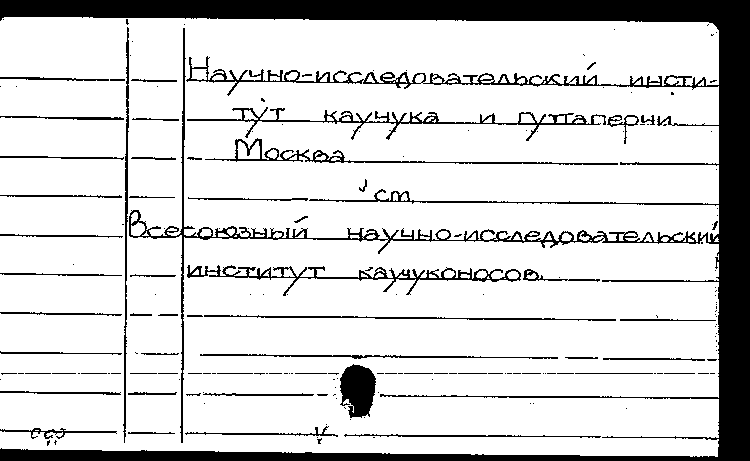 Научно-исследовательский инсти-
тут каучука и гуттаперчи.
Москва
см.
Всесоюзный научно-исследовательский
институт каучуконосов.